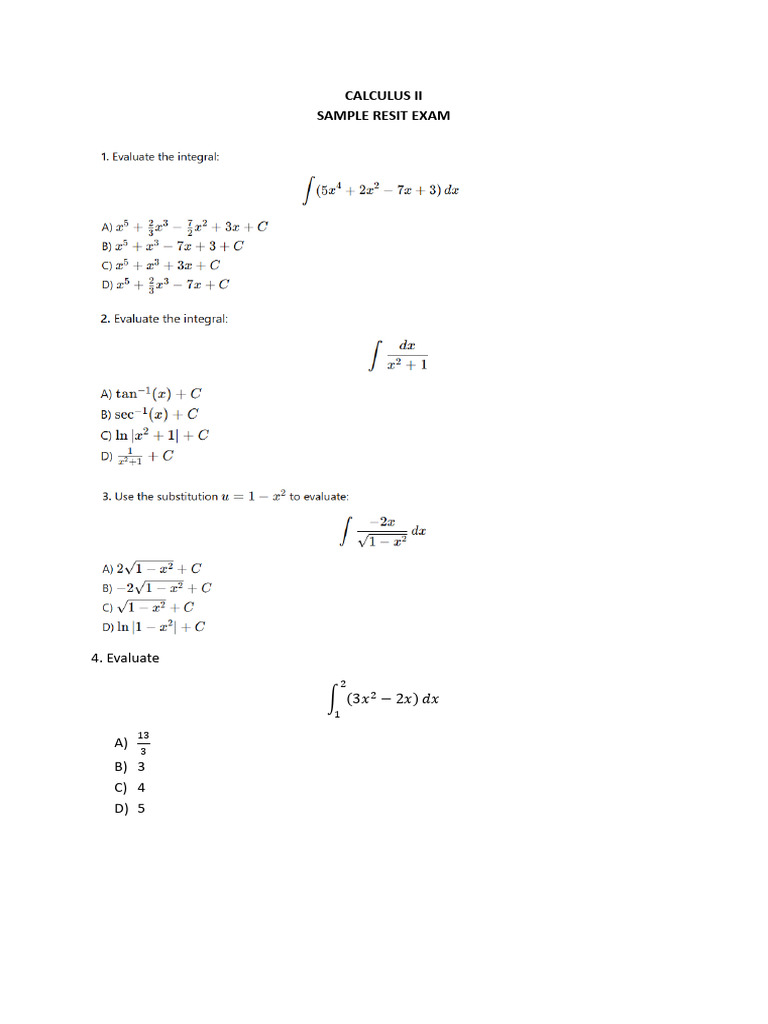 CALCULUS II
SAMPLE RESIT EXAM
1. Evaluate the integral:
∫(5x⁴ + 2x² − 7x + 3) dx
A) x⁵ + 2/3 x³ − 7/2 x² + 3x + C
B) x⁵ + x³ − 7x + 3 + C
C) x⁵ + x³ + 3x + C
D) x⁵ + 2/3 x³ − 7x + C
2. Evaluate the integral:
∫ dx/(x² + 1)
A) tan⁻¹(x) + C
B) sec⁻¹(x) + C
C) ln |x² + 1| + C
D) 1/(x²+1) + C
3. Use the substitution u = 1 − x² to evaluate:
∫ −2x/√(1 − x²) dx
A) 2√(1 − x²) + C
B) −2√(1 − x²) + C
C) √(1 − x²) + C
D) ln |1 − x²| + C
4. Evaluate
∫₁² (3x² − 2x) dx
A) 13/3
B) 3
C) 4
D) 5